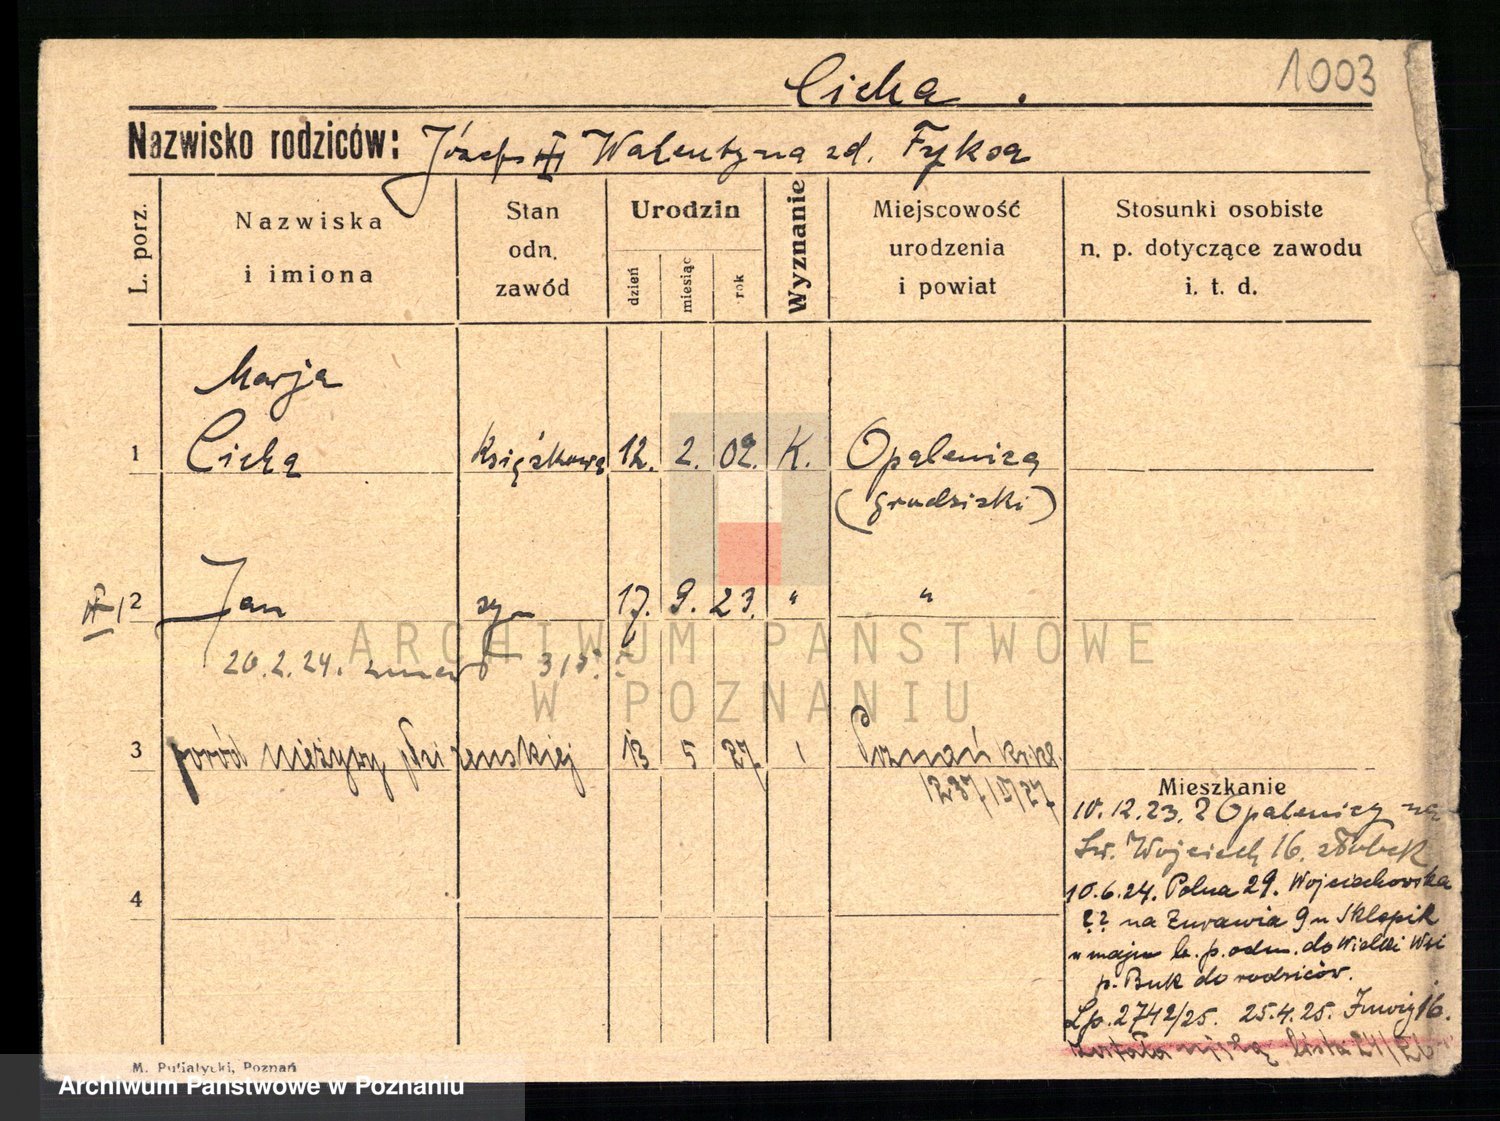 1003
Cicha.
Nazwisko rodziców: Józef Walentyna zd.
L. porz.
Nazwiska i imiona
Stan odn. zawód
Urodzin
dzień
miesiąc
rok
Wyznanie
Miejscowość urodzenia i powiat
Stosunki osobiste n. p. dotyczące zawodu i. t. d.
Marja
1 Cicha Książkowa 12. 2. 02. K. Opalenica
(grodziski)
2 Jan syn 17. 9. 23. " "
20.2.24. zmarł
3 poród nieżywy płci żeńskiej 13 5 27 Poznań
1237/V/27
4
Mieszkanie
10.12.23. z Opalenicy na
Św. Wojciech 16. żłobek
10.6.24. Polna 29. Wojciechowska
?? na Żurawia 9 u Sklepik
w maju b. p. odm. do Wielki Wsi
p. Buk do rodziców.
Lp. 2742/25. 25.4.25.
lista 24/26
ARCHIWUM PAŃSTWOWE
W POZNANIU
M. Putiatycki, Poznań
Archiwum Państwowe w Poznaniu